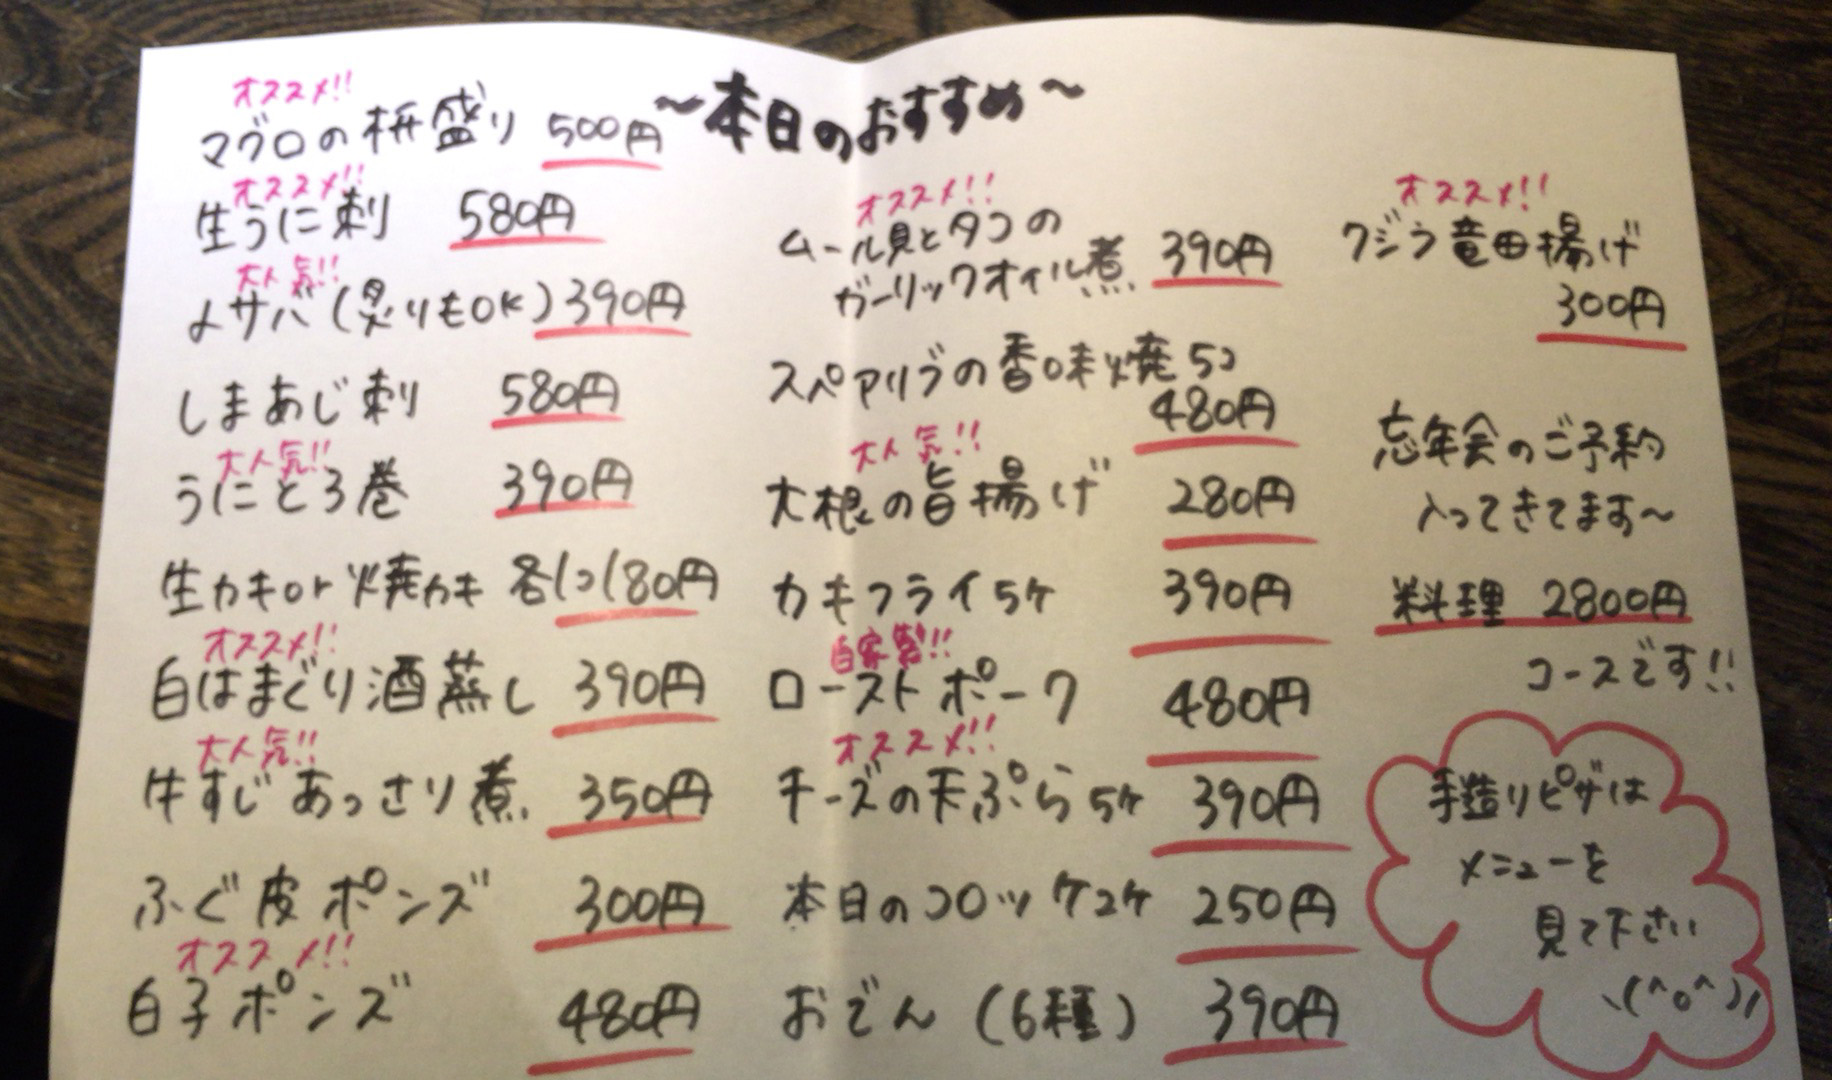 〜本日のおすすめ〜
オススメ!!
マグロの枡盛り 500円
オススメ!!
生うに刺 580円
大人気!!
〆サバ(炙りもOK) 390円
しまあじ刺 580円
大人気!!
うにとろ巻 390円
生カキor焼カキ 各1コ180円
オススメ!!
白はまぐり酒蒸し 390円
大人気!!
牛すじあっさり煮 350円
ふぐ皮ポンズ 300円
オススメ!!
白子ポンズ 480円
オススメ!!
ムール貝とタコの
ガーリックオイル煮 390円
スペアリブの香味焼 5コ
480円
大人気!!
大根の旨揚げ 280円
カキフライ5ケ 390円
自家製!!
ローストポーク 480円
オススメ!!
チーズの天ぷら5ケ 390円
本日のコロッケ2ケ 250円
おでん(6種) 390円
オススメ!!
クジラ竜田揚げ
300円
忘年会のご予約
入ってきてます〜
料理 2800円
コースです!!
手造りピザは
メニューを
見て下さい
\(^o^)/